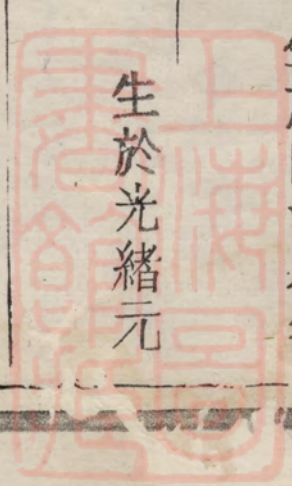 生於光緒元
上海圖書館藏